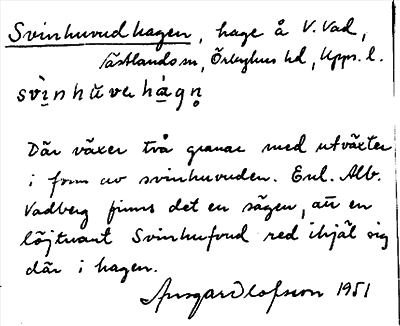 Svinhuvudhagen, hage å V. Vad,
Västlands sn, Örbyhus hd, Upps. l.
svi̱nhŭvehàgn̥
Där växer två granar med utväxter
i form av svinhuvuden. Enl. Alb.
Vadberg finns det en sägen, att en
löjtnant Svinhufvud red ihjäl sig
där i hagen.
Ansgar Olofsson 1951